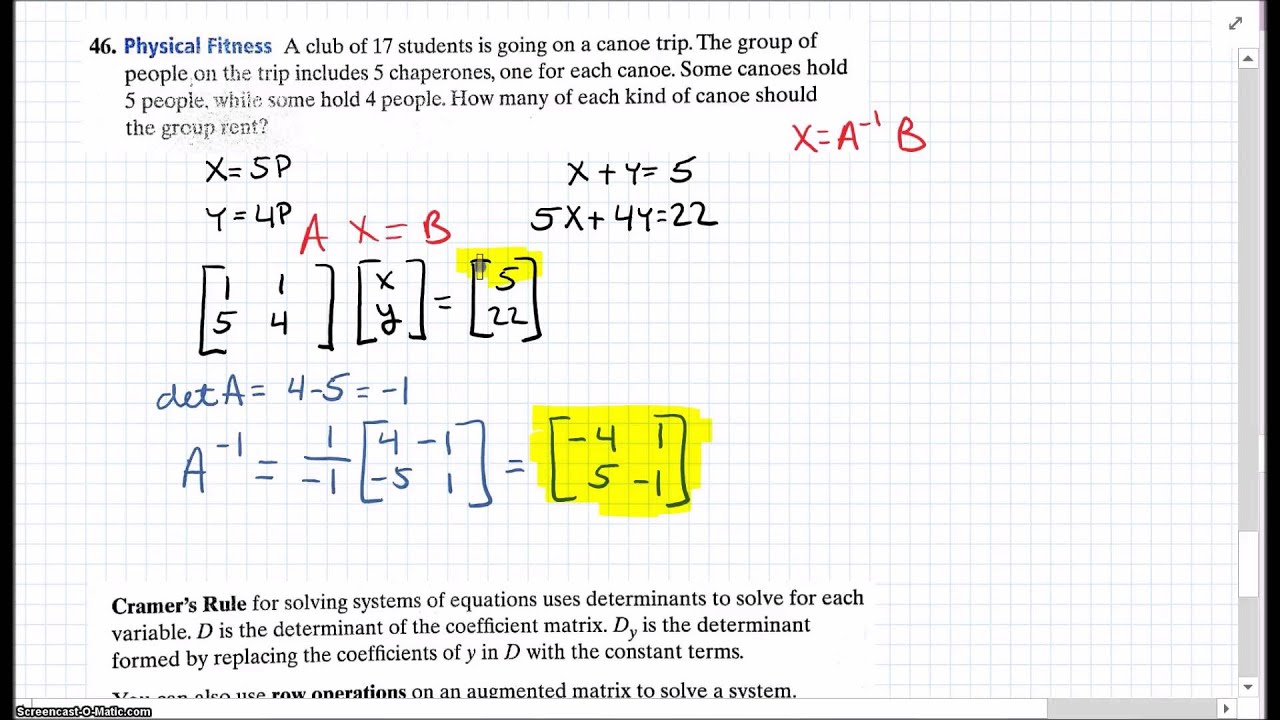 46. Physical Fitness A club of 17 students is going on a canoe trip. The group of
people on the trip includes 5 chaperones, one for each canoe. Some canoes hold
5 people, while some hold 4 people. How many of each kind of canoe should
the group rent?
X = A⁻¹ B
X = 5P
X + Y = 5
Y = 4P
5X + 4Y = 22
A X = B
[1 1
5 4] [x
y] = [5
22]
det A = 4 - 5 = -1
A⁻¹ = 1/-1 [4 -1
-5 1] = [-4 1
5 -1]
Cramer's Rule for solving systems of equations uses determinants to solve for each
variable. D is the determinant of the coefficient matrix. Dy is the determinant
formed by replacing the coefficients of y in D with the constant terms.
You can also use row operations on an augmented matrix to solve a system.
Screencast-O-Matic.com